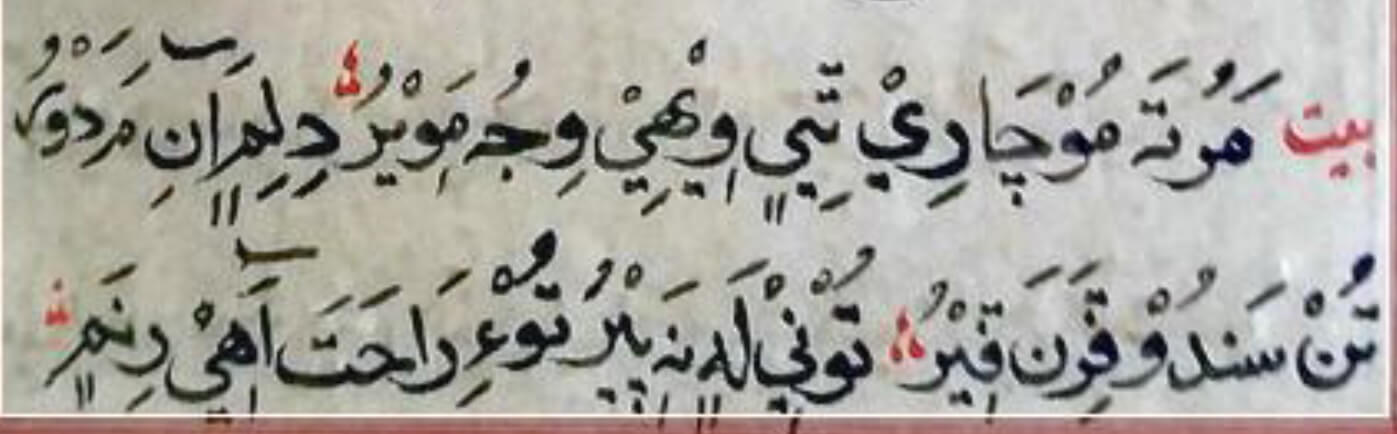 بيت مَرُ تَہ مُوْچَارِيْ تِيٖ وِيْهِيْ وِجُہ مَوِيْرُ دِلِمِرَآنِ مَرَدُوْرِ
تُنْ سَندُوْ فِرَنَ فِيْرُ تُوْنِيْ لَہِ نَہ پِيْرُ تُوْءِ رَاحَتَ آهِيْ رِنَمِ